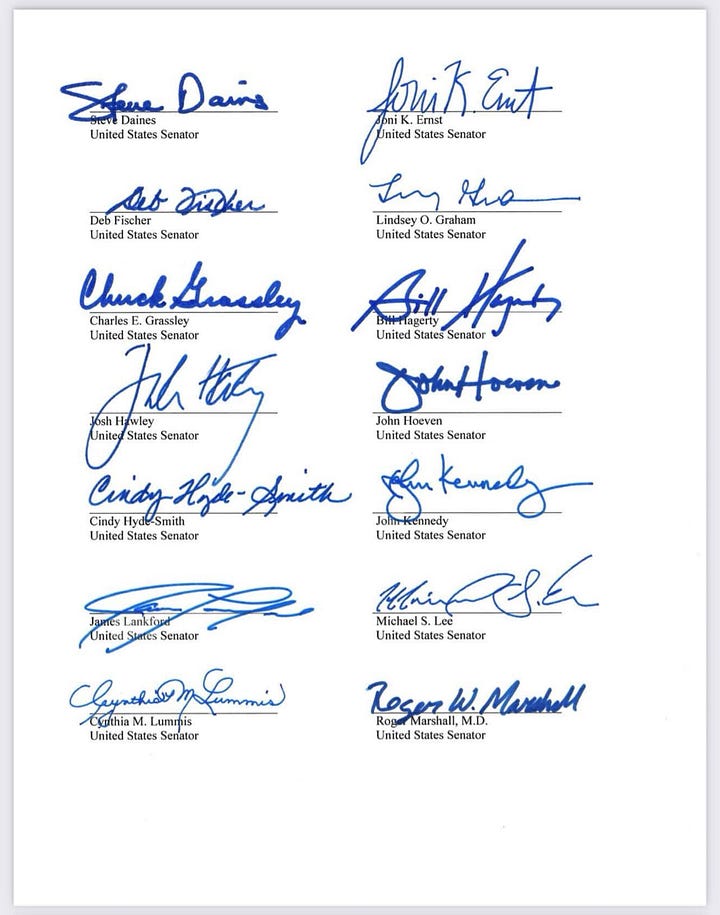 Steve Daines Joni K. Ernst
Steve Daines Joni K. Ernst
United States Senator United States Senator
Deb Fischer
Deb Fischer Lindsey O. Graham
United States Senator United States Senator
Chuck Grassley Bill Hagerty
Charles E. Grassley Bill Hagerty
United States Senator United States Senator
Josh Hawley John Hoeven
Josh Hawley John Hoeven
United States Senator United States Senator
Cindy Hyde-Smith John Kennedy
Cindy Hyde-Smith John Kennedy
United States Senator United States Senator
James Lankford Michael S. Lee
United States Senator United States Senator
Cynthia M Lummis Roger W. Marshall
Cynthia M. Lummis Roger Marshall, M.D.
United States Senator United States Senator